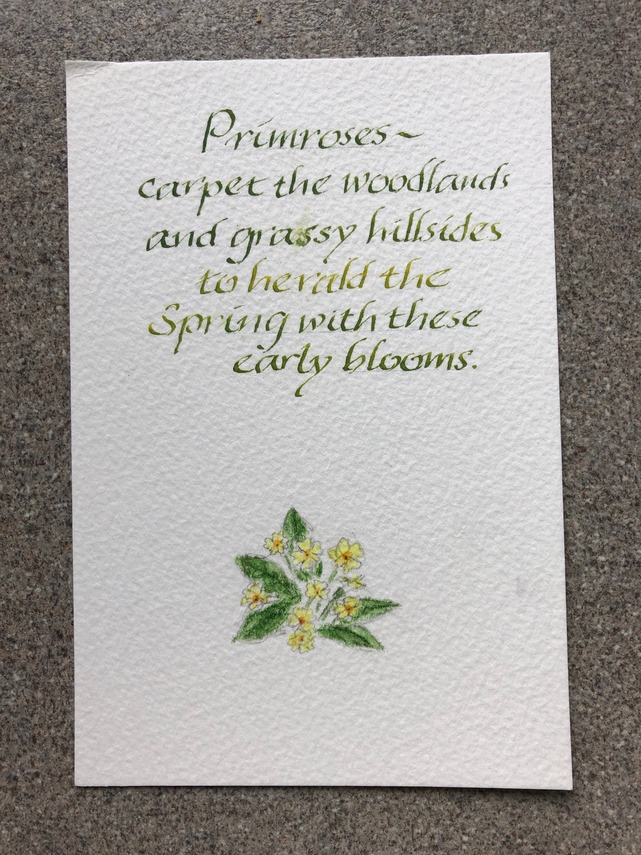 Primroses~
carpet the woodlands
and grassy hillsides
to herald the
Spring with these
early blooms.